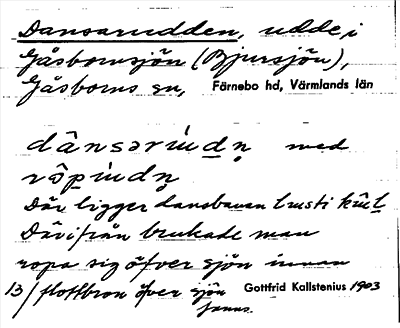 Dansarudden, udde i
Gåsbornsjön (Bjursjön),
Gåsborns sn, Färnebo hd, Värmlands län
dânsərùdṇ med
Där ligger dansbanan
Därifrån brukade man
ropa sig öfver sjön innan
13/ flottbron öfver sjön Gottfrid Kallstenius 1903
fanns.